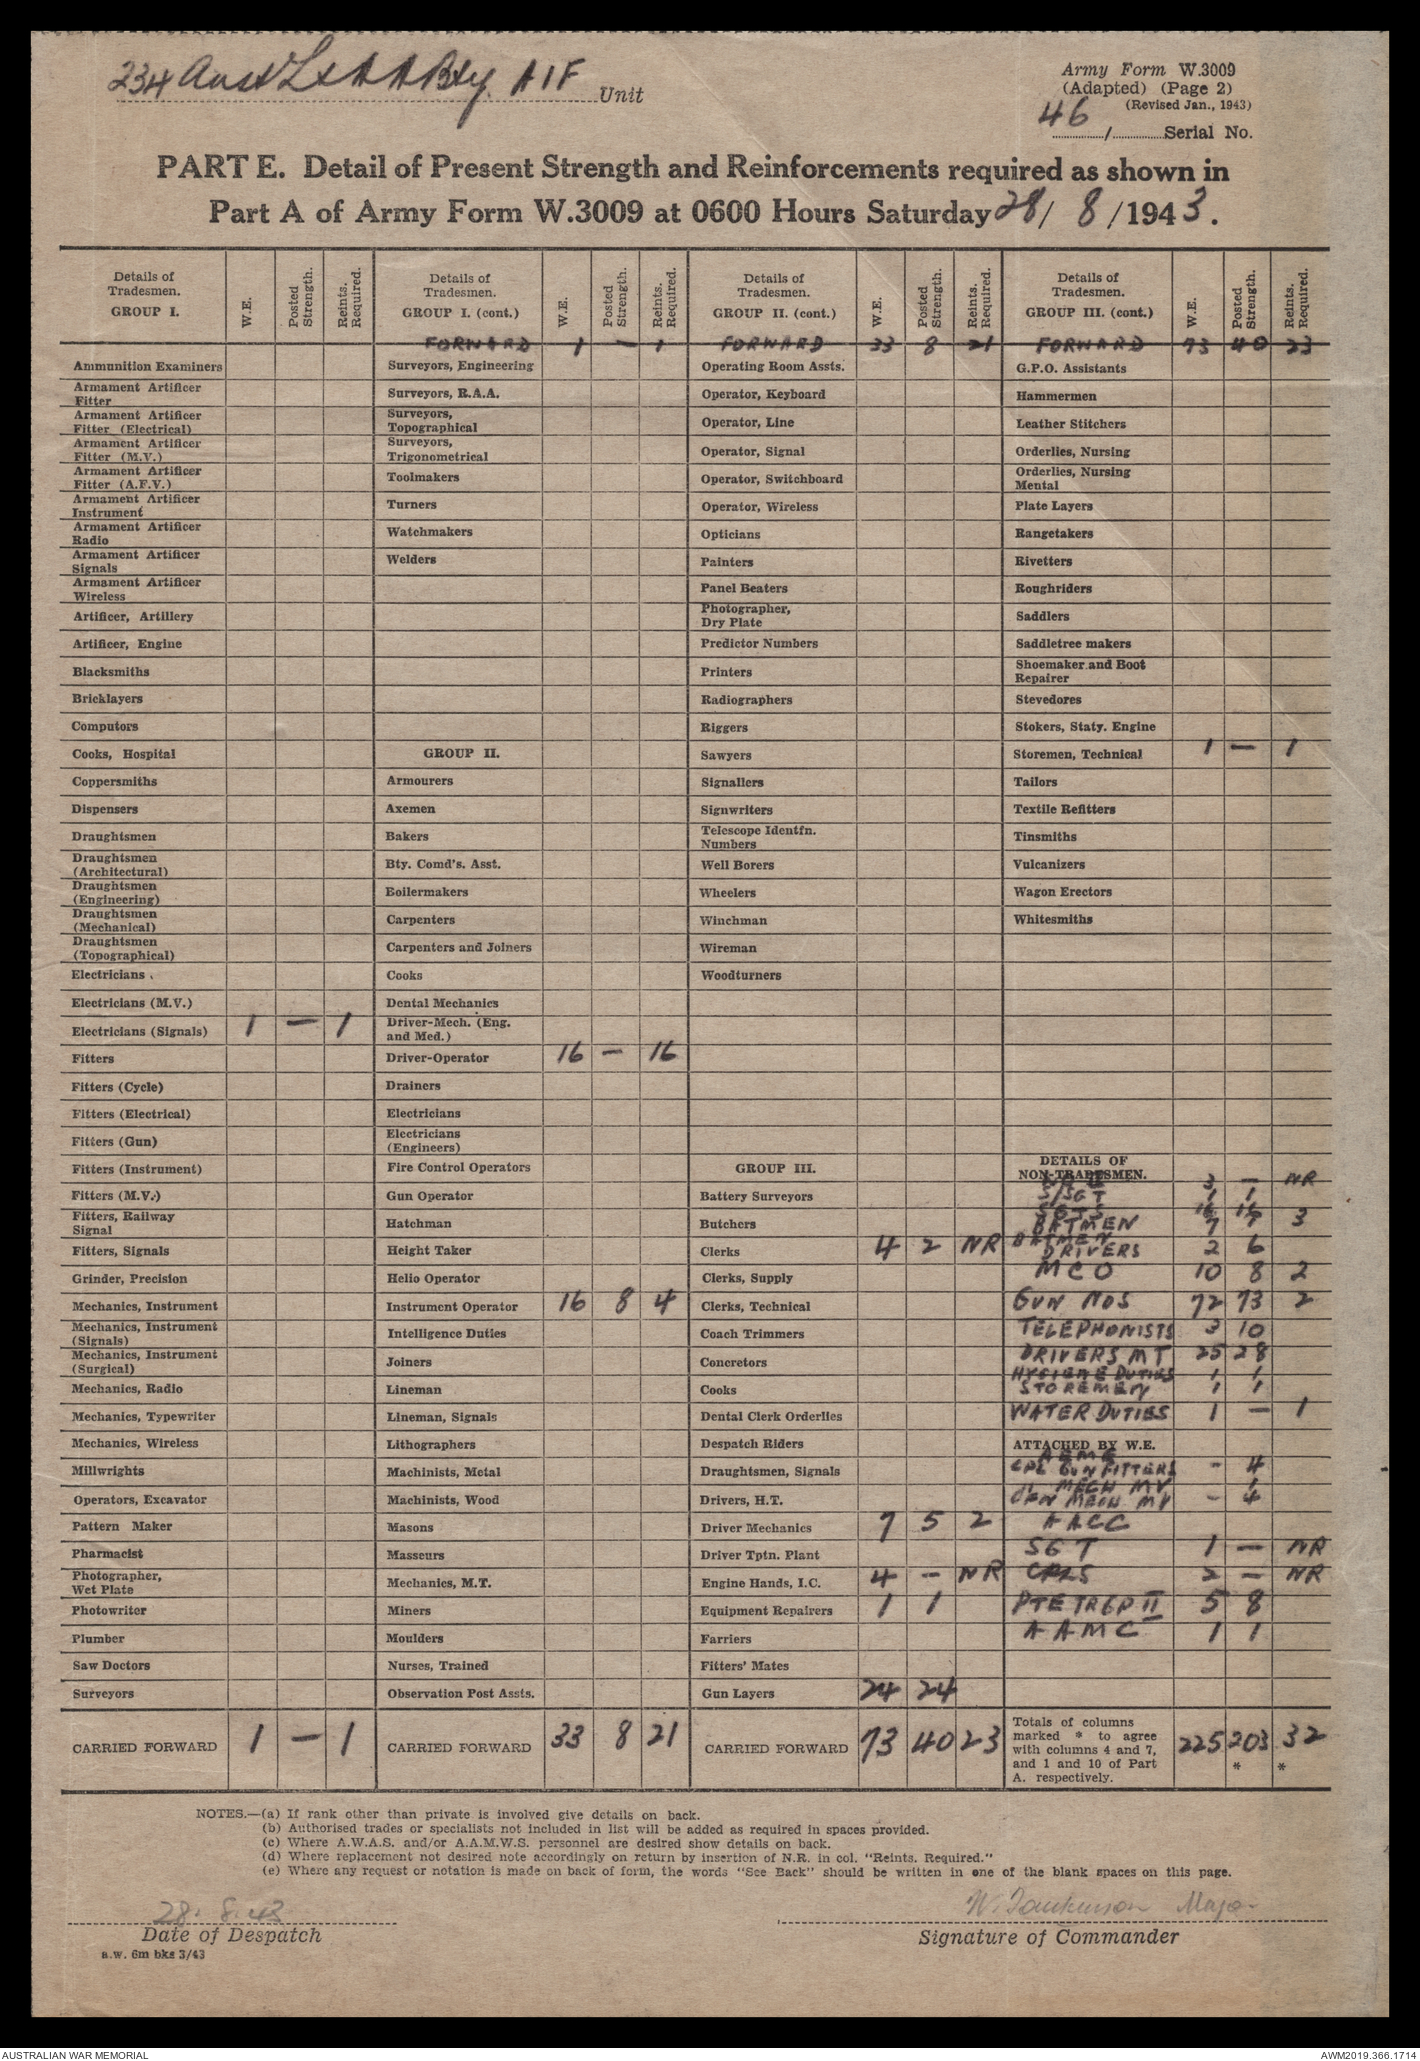 234 Aust Lt A A Bty. AIF Unit
Army Form W.3009
(Adapted) (Page 2)
(Revised Jan., 1943)
46 / Serial No.
PART E. Detail of Present Strength and Reinforcements required as shown in
Part A of Army Form W.3009 at 0600 Hours Saturday 28/ 8 /1943.
Details of Tradesmen. GROUP I. W.E. Posted Strength. Reints. Required. Details of Tradesmen. GROUP I. (cont.) W.E. Posted Strength. Reints. Required. Details of Tradesmen. GROUP II. (cont.) W.E. Posted Strength. Reints. Required. Details of Tradesmen. GROUP III. (cont.) W.E. Posted Strength. Reints. Required.
FORWARD 1 — 1 FORWARD 33 8 21 FORWARD 73 40 23
Ammunition Examiners Surveyors, Engineering Operating Room Assts. G.P.O. Assistants
Armament Artificer Fitter Surveyors, R.A.A. Operator, Keyboard Hammermen
Armament Artificer Fitter (Electrical) Surveyors, Topographical Operator, Line Leather Stitchers
Armament Artificer Fitter (M.V.) Surveyors, Trigonometrical Operator, Signal Orderlies, Nursing
Armament Artificer Fitter (A.F.V.) Toolmakers Operator, Switchboard Orderlies, Nursing Mental
Armament Artificer Instrument Turners Operator, Wireless Plate Layers
Armament Artificer Radio Watchmakers Opticians Rangetakers
Armament Artificer Signals Welders Painters Rivetters
Armament Artificer Wireless Panel Beaters Roughriders
Artificer, Artillery Photographer, Dry Plate Saddlers
Artificer, Engine Predictor Numbers Saddletree makers
Blacksmiths Printers Shoemaker and Boot Repairer
Bricklayers Radiographers Stevedores
Computors Riggers Stokers, Staty. Engine
Cooks, Hospital GROUP II. Sawyers Storemen, Technical 1 — 1
Coppersmiths Armourers Signallers Tailors
Dispensers Axemen Signwriters Textile Refitters
Draughtsmen Bakers Telescope Identfn. Numbers Tinsmiths
Draughtsmen (Architectural) Bty. Comd's. Asst. Well Borers Vulcanizers
Draughtsmen (Engineering) Boilermakers Wheelers Wagon Erectors
Draughtsmen (Mechanical) Carpenters Winchman Whitesmiths
Draughtsmen (Topographical) Carpenters and Joiners Wireman
Electricians Cooks Woodturners
Electricians (M.V.) Dental Mechanics
Electricians (Signals) 1 — 1 Driver-Mech. (Eng. and Med.)
Fitters Driver-Operator 16 — 16
Fitters (Cycle) Drainers
Fitters (Electrical) Electricians
Fitters (Gun) Electricians (Engineers)
Fitters (Instrument) Fire Control Operators GROUP III. DETAILS OF NON-TRADESMEN.
3 — NR
Fitters (M.V.) Gun Operator Battery Surveyors S/SGT 1 1
SGTS 16 16
Fitters, Railway Signal Hatchman Butchers BATMEN 7 7 3
Fitters, Signals Height Taker Clerks 4 2 NR BATMEN DRIVERS 2 6
Grinder, Precision Helio Operator Clerks, Supply MCO 10 8 2
Mechanics, Instrument Instrument Operator 16 8 4 Clerks, Technical GUN NOS 72 73 2
Mechanics, Instrument (Signals) Intelligence Duties Coach Trimmers TELEPHONISTS 3 10
Mechanics, Instrument (Surgical) Joiners Concretors DRIVERS MT 25 28
HYGIENE DUTIES 1 1
Mechanics, Radio Lineman Cooks STOREMEN 1 1
Mechanics, Typewriter Lineman, Signals Dental Clerk Orderlies WATER DUTIES 1 — 1
Mechanics, Wireless Lithographers Despatch Riders ATTACHED BY W.E.
AEME
Millwrights Machinists, Metal Draughtsmen, Signals CPL GUN FITTERS - 4
" MECH MV 1
Operators, Excavator Machinists, Wood Drivers, H.T. CFN MECH MV - 4
Pattern Maker Masons Driver Mechanics 7 5 2 AACC
Pharmacist Masseurs Driver Tptn. Plant SGT 1 — NR
Photographer, Wet Plate Mechanics, M.T. Engine Hands, I.C. 4 — NR CPLS 2 — NR
Photowriter Miners Equipment Repairers 1 1 PTE TRGP II 5 8
Plumber Moulders Farriers AAMC 1 1
Saw Doctors Nurses, Trained Fitters' Mates
Surveyors Observation Post Assts. Gun Layers 24 24
CARRIED FORWARD 1 — 1 CARRIED FORWARD 33 8 21 CARRIED FORWARD 73 40 23 Totals of columns marked * to agree with columns 4 and 7, and 1 and 10 of Part A. respectively. 225 203 * 32 *
NOTES.—(a) If rank other than private is involved give details on back.
(b) Authorised trades or specialists not included in list will be added as required in spaces provided.
(c) Where A.W.A.S. and/or A.A.M.W.S. personnel are desired show details on back.
(d) Where replacement not desired note accordingly on return by insertion of N.R. in col. "Reints. Required."
(e) Where any request or notation is made on back of form, the words "See Back" should be written in one of the blank spaces on this page.
28. 8.43 W. Tomkinson Major
Date of Despatch Signature of Commander
a.w. 6m bks 3/43
AUSTRALIAN WAR MEMORIAL AWM2019.366.1714